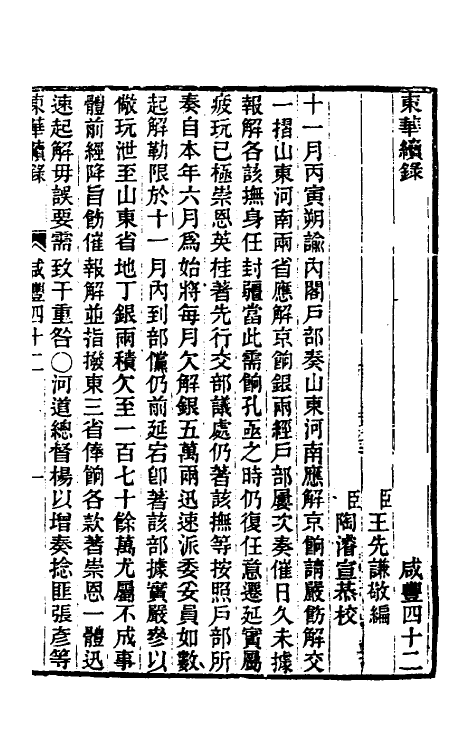 東華續錄 咸豐四十二
臣王先謙敬編
臣陶濬宣恭校
十一月丙寅朔諭內閣戶部奏山東河南應解京餉請嚴飭解交
一摺山東河南兩省應解京餉銀兩經戶部屢次奏催日久未據
報解各該撫身任封疆當此需餉孔亟之時仍復任意遷延實屬
疲玩已極崇恩英桂著先行交部議處仍著該撫等按照戶部所
奏自本年六月為始將每月欠解銀五萬兩迅速派委妥員如數
起解勒限於十一月內到部儻仍前延宕卽著該部據實嚴參以
儆玩泄至山東省地丁銀兩積欠至一百七十餘萬尤屬不成事
體前經降旨飭催報解並指撥東三省俸餉各款著崇恩一體迅
速起解毋誤要需致干重咎〇河道總督楊以增奏捻匪張彥等
東華續錄 咸豐四十二 一